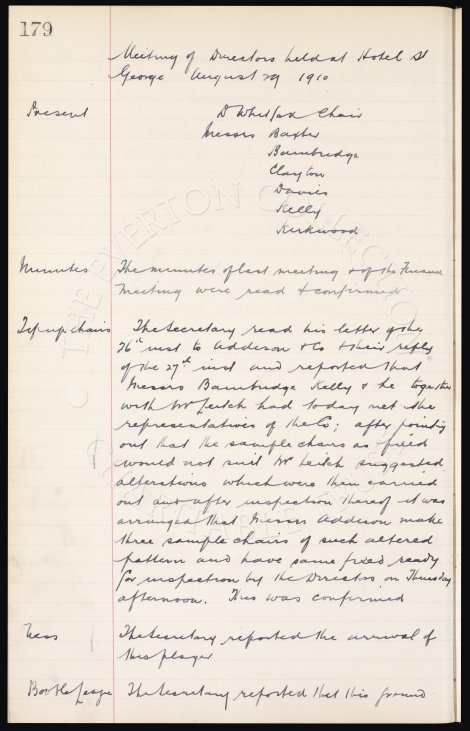 179
Meeting of Directors held at Hotel St
George August 29 1910
Present D Whitford Chair
Messrs Baxter
Bainbridge
Clayton
Davies
Kelly
Kirkwood
Minutes The minutes of last meeting & of the Finance
Meeting were read & confirmed
Tip up chairs The Secretary read his letter of the
26th inst to Addison & Co & their reply
of the 27th inst and reported that
Messrs Bainbridge Kelly & he together
with Mr Leitch had today met the
representatives of the Co; after pointing
out that the sample chairs as fixed
would not suit Mr Leitch suggested
alterations which were then carried
out and after inspection thereof it was
arranged that Messrs Addison make
three sample chairs of such altered
pattern and have same fixed ready
for inspection by the Directors on Thursday
afternoon. This was confirmed
The Secretary reported the arrival of
this player
Bootle The Secretary reported that this ground
THE EVERTON COLLECTION
CHARITABLE TRUST